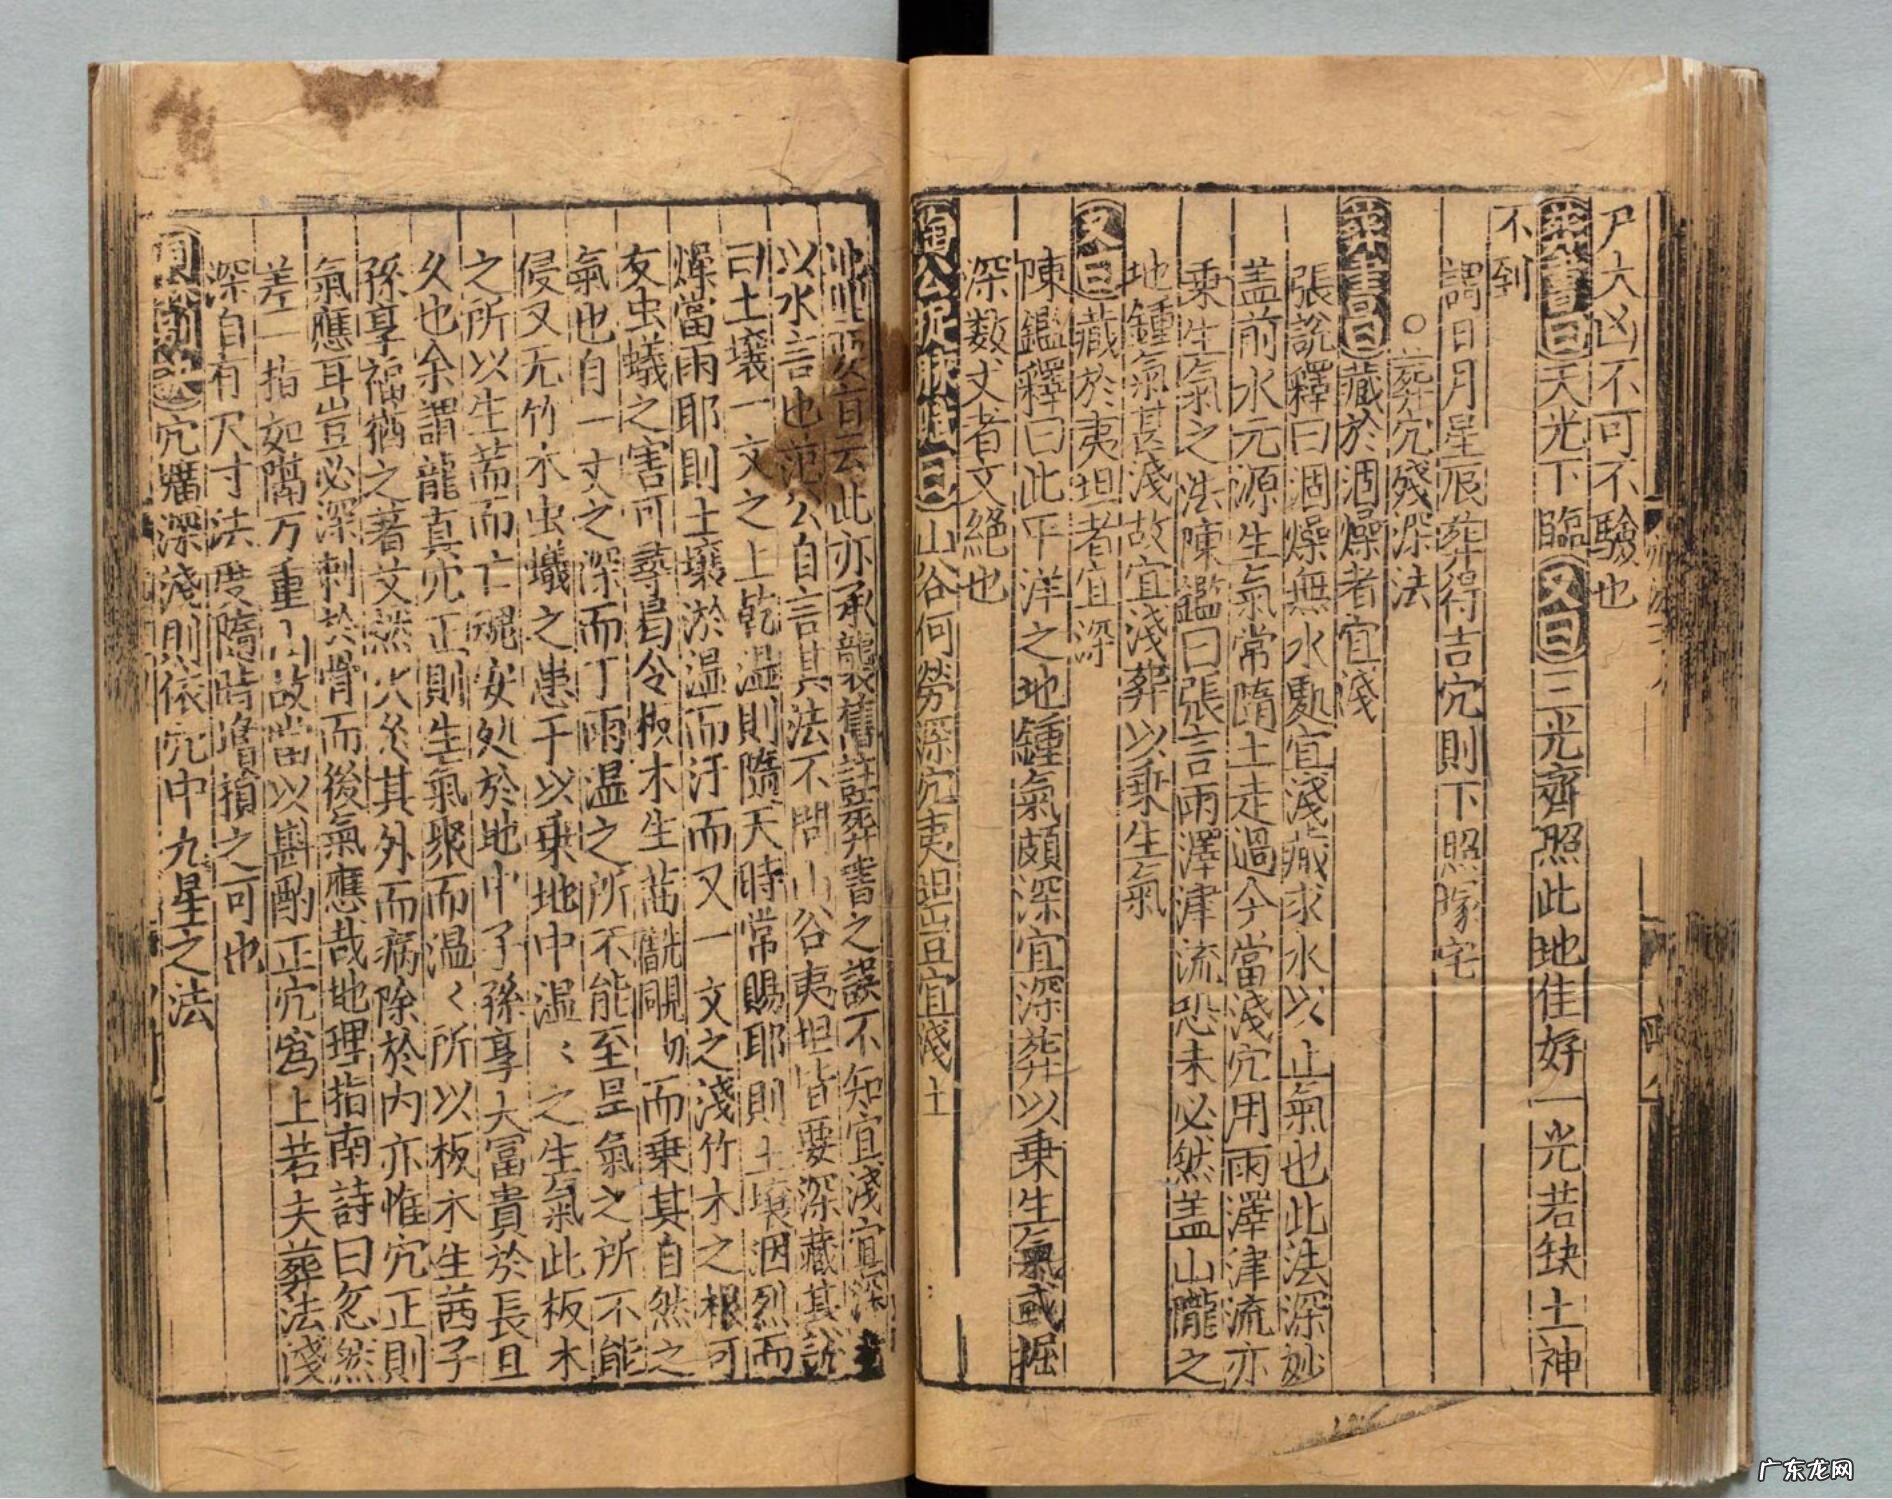 尸大凶不可不驗也
葬書曰天光下臨又曰三光齊照此地佳好一光若缺土神
不到
謂日月星辰葬得吉穴則下照塚宅
○葬穴殘深法
葬書曰藏於涸燥者宜淺
張說釋曰涸燥無水處宜淺藏求水以止氣也此法深妙
盖前水元源生氣常隋土走過今當淺穴用雨澤津流亦
乗生氣之法陳鑑曰張言雨澤津流恐未必然盖山隴之
地鍾氣甚淺故宜淺葬以乗生氣
又曰藏於夷坦者宜深
陳鑑釋曰此平洋之地鍾氣頗深宜深葬以乗生氣或掘
深数丈者文絕也
公曰山谷何勞深穴夷坦豈宜淺土
云此亦承襲舊註葬書之誤不知宜淺宜深
以水言也范公自言其法不問山谷夷坦皆要深藏其說
曰土壤一文之上乾溫則隨天時常賜耶則土壤洇烈而
燥當雨耶則土壤淤溫而汙而又一文之淺竹木之根可
友虫蟻之害可尋曷令板木生茁而乗其自然之
氣也自一丈之深而丁雨溫之所不能至昰氣之所不能
侵又无竹木虫蟻之患于以乗地中温〻之生氣此板木
之所以生茁而亡魂安処於地中子孫享大冨貴於長且
乆也余謂龍真穴正則生氣聚而温〻所以板木生茁子
孫享福猶之著艾然火炙其外而病除於內亦惟穴正則
氣應耳豈必深刺於骨而後氣應哉地理指南詩曰忽然
差一指如隔万重山故當以斟酌正穴為上若夫葬法淺
深自有尺寸法度隨時增損之可也
穴壙深淺則依穴中九星之法
广东龙网